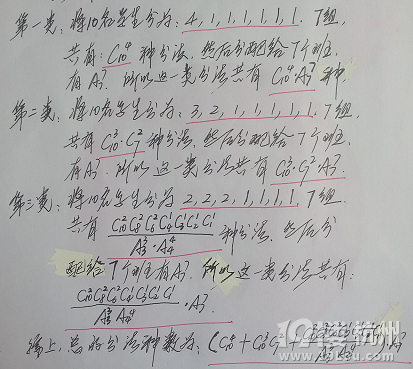 第一类:将10名学生分为:4,1,1,1,1,1,1. 7组,
共有:C₁₀⁴ 种分法,然后分配给7个班,
有A₇⁷. 所以这一类分法共有 C₁₀⁴·A₇⁷ 种.
第二类:将10名学生分为:3,2,1,1,1,1,1. 7组
共有C₁₀³·C₇²种分法,然后分配给7个班,
有A₇⁷. 所以这一类分法共有C₁₀³·C₇²·A₇⁷.
第三类:将10名学生分为:2,2,2,1,1,1,1. 7组.
共有 C₁₀²C₈²C₆²C₄¹C₃¹C₂¹C₁¹ / A₃³·A₄⁴ 种分法,然后分
配给7个班有A₇⁷. 所以这一类分法共有:
C₁₀²C₈²C₆²C₄¹C₃¹C₂¹C₁¹ / A₃³A₄⁴ ·A₇⁷.
综上,总的分法种数为:(C₁₀⁴+C₁₀³C₇²